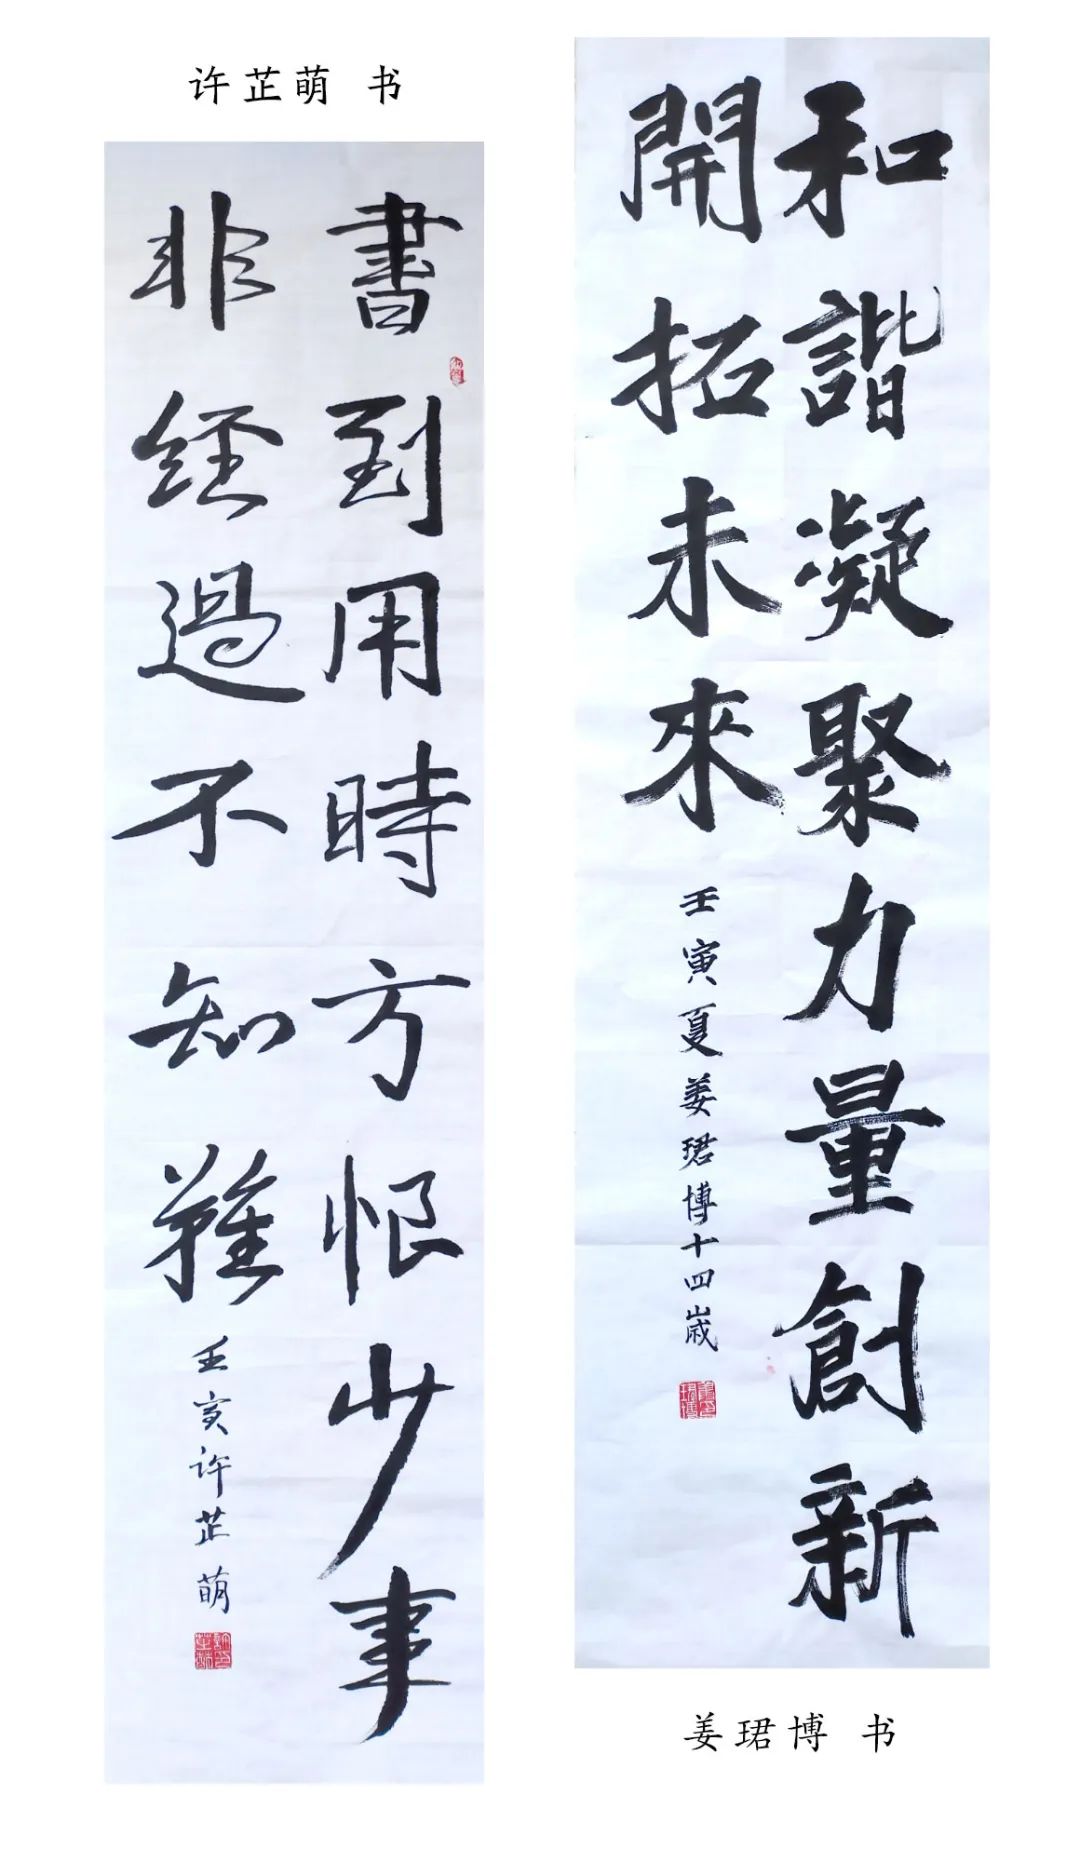 许芷萌 书
書到用時方恨少事
非經過不知難
壬寅许芷萌
和諧凝聚力量創新
開拓未來
壬寅夏姜珺博十四歲
姜珺博 书